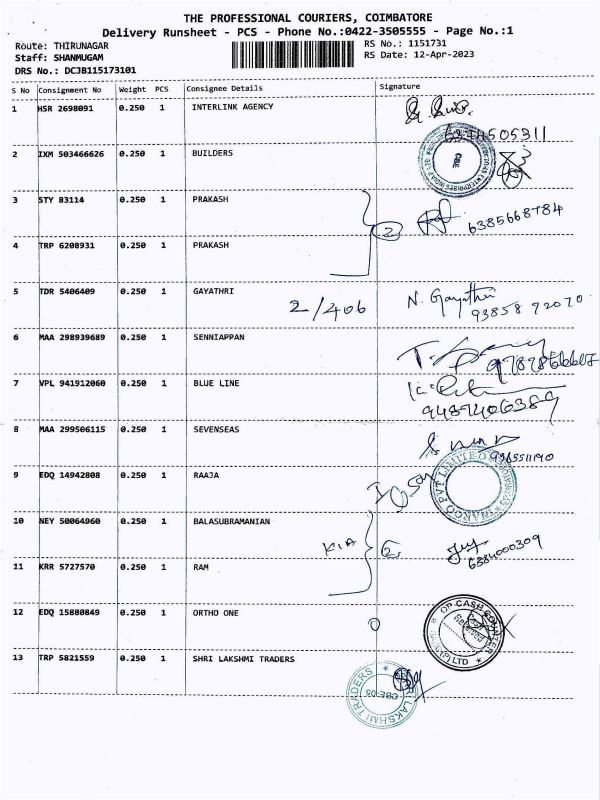 THE PROFESSIONAL COURIERS, COIMBATORE
Delivery Runsheet - PCS - Phone No.:0422-3505555 - Page No.:1
Route: THIRUNAGAR RS No.: 1151731
Staff: SHANMUGAM RS Date: 12-Apr-2023
DRS No.: DCJB115173101
S No Consignment No Weight PCS Consignee Details Signature
1 HSR 2698091 0.250 1 INTERLINK AGENCY
2 IXM 503466626 0.250 1 BUILDERS
CBE
3 STY 83114 0.250 1 PRAKASH
2 6385668784
4 TRP 6208931 0.250 1 PRAKASH
5 TDR 5406409 0.250 1 GAYATHRI
2/406 N. Gayathri
93858 92070
6 MAA 298939689 0.250 1 SENNIAPPAN
7 VPL 941912060 0.250 1 BLUE LINE
8 MAA 299506115 0.250 1 SEVENSEAS
9 EDQ 14942808 0.250 1 RAAJA
PVT LIMITED
10 NEY 50064960 0.250 1 BALASUBRAMANIAN
KIA 2
6384000309
11 KRR 5727570 0.250 1 RAM
12 EDQ 15880849 0.250 1 ORTHO ONE
OP CASH COUNTER
(P) LTD
13 TRP 5821559 0.250 1 SHRI LAKSHMI TRADERS
LAKSHMI TRADERS